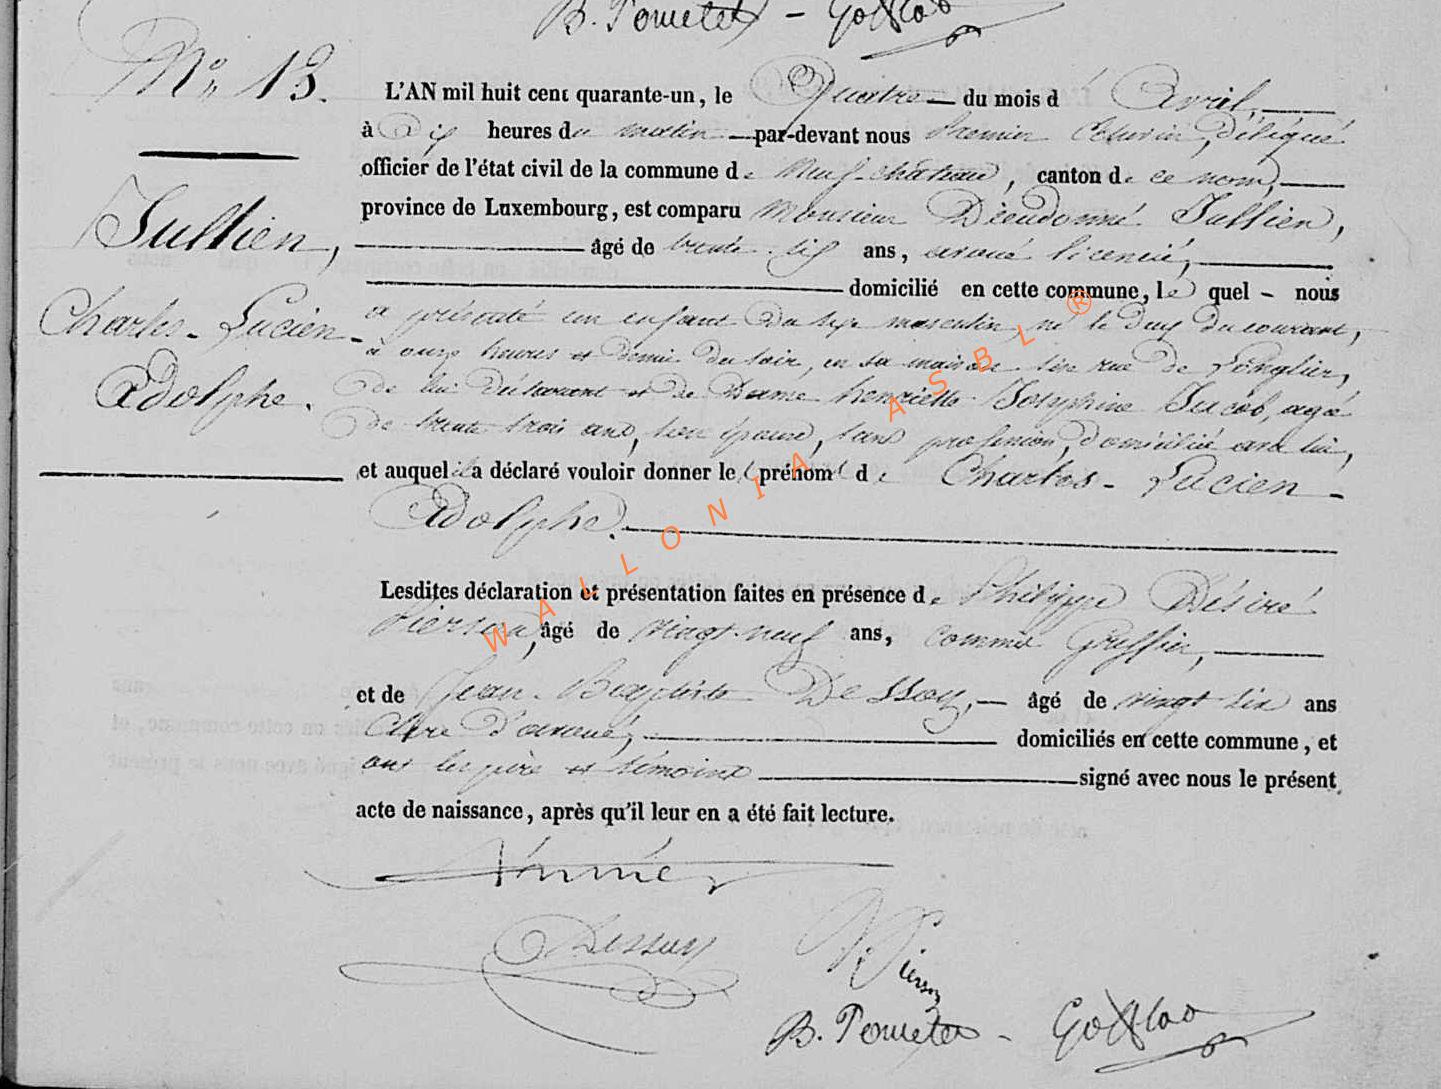 B. Pouretet - Gofflao
N° 13.
L'AN mil huit cent quarante-un, le Quatre du mois d'Avril
à Dix heures du matin par-devant nous Premier Echevin, Délégué
officier de l'état civil de la commune de Neufchâteau, canton de ce nom,
province de Luxembourg, est comparu Monsieur Dieudonné Jullien,
Jullien,
âgé de trente-six ans, avoué licencié,
domicilié en cette commune, lequel nous
Charles-Lucien-
a présenté un enfant du sexe masculin, né le deux du courant,
à onze heures et demie du soir, en sa maison sise rue de Longlier,
Adolphe.
de lui Déclarant et de Dame Henriette Josephine Jacob, agée
de trente trois ans, son épouse, sans profession, domiciliée avec lui,
et auquel il a déclaré vouloir donner les prénoms de Charles-Lucien-
Adolphe.
Lesdites déclaration et présentation faites en présence de Philippe Désiré
Pierson, âgé de vingt-neuf ans, commis Greffier,
et de Jean-Baptiste Dessoy, âgé de vingt six ans
Clerc d'avoué, domiciliés en cette commune, et
ont les père et témoins signé avec nous le présent
acte de naissance, après qu'il leur en a été fait lecture.
Dessoy
Pierson
B. Pouretet - Gofflao
WALLONIA ASBL ®